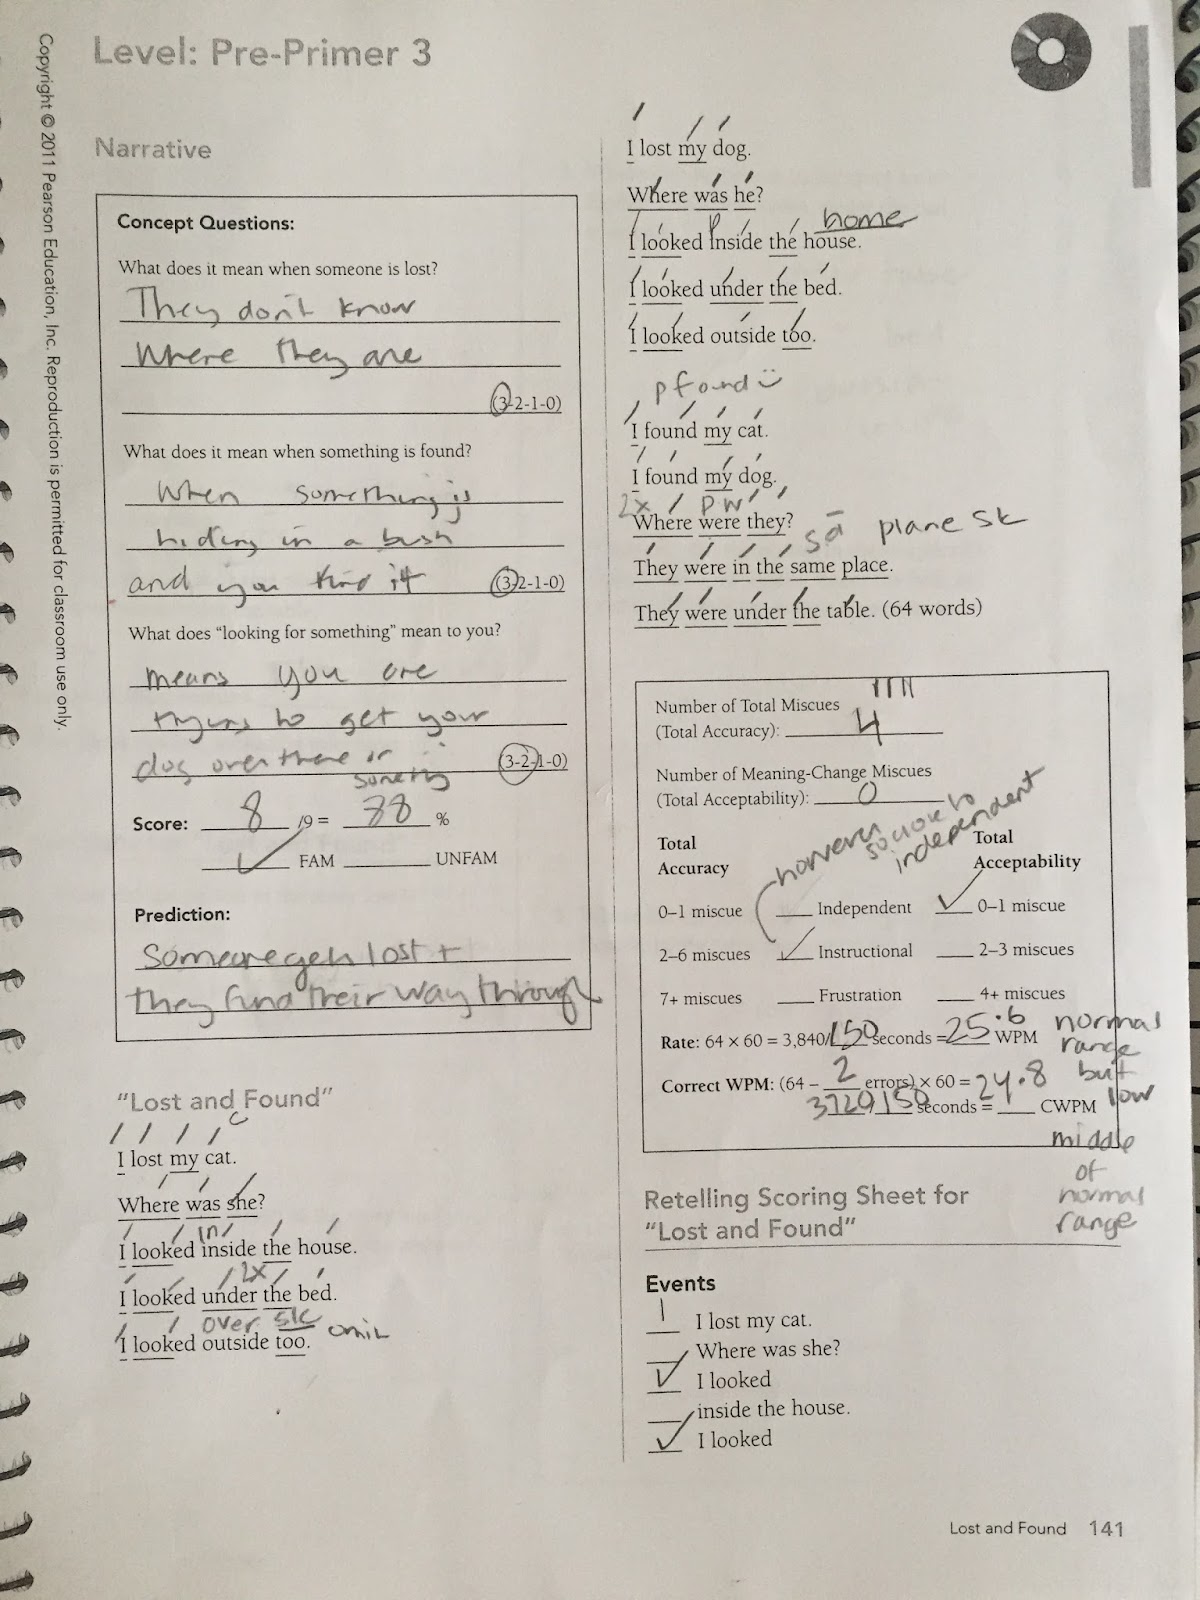 Copyright © 2011 Pearson Education, Inc. Reproduction is permitted for classroom use only.
Level: Pre-Primer 3
Narrative
Concept Questions:
What does it mean when someone is lost?
They don't know
where they are
(3-2-1-0)
What does it mean when something is found?
When something is
hiding in a bush
and you find it
(3-2-1-0)
What does "looking for something" mean to you?
means you are
trying to get your
dog over there or
something
(3-2-1-0)
Score: 8 /9 = 88 %
FAM UNFAM
Prediction:
Someone gets lost +
they find their way through
"Lost and Found"
c
I lost my cat.
Where was she?
in
I looked inside the house.
2x
I looked under the bed.
over sk omit
I looked outside too.
I lost my dog.
Where was he?
p home
I looked inside the house.
I looked under the bed.
I looked outside too.
p found
I found my cat.
I found my dog.
2x p w
Where were they?
sā plane sk
They were in the same place.
They were under the table. (64 words)
Number of Total Miscues
(Total Accuracy): 4
Number of Meaning-Change Miscues
(Total Acceptability): 0
however
so close to
independent
Total Accuracy
Total Acceptability
0–1 miscue Independent 0–1 miscue
2–6 miscues Instructional 2–3 miscues
7+ miscues Frustration 4+ miscues
Rate: 64 × 60 = 3,840/150 seconds = 25.6 WPM
Correct WPM: (64 – 2 errors) × 60 = 24.8
3720/150 seconds = CWPM
normal
range
but
low
middle
of
normal
range
Retelling Scoring Sheet for
"Lost and Found"
Events
I lost my cat.
Where was she?
I looked
inside the house.
I looked
Lost and Found 141